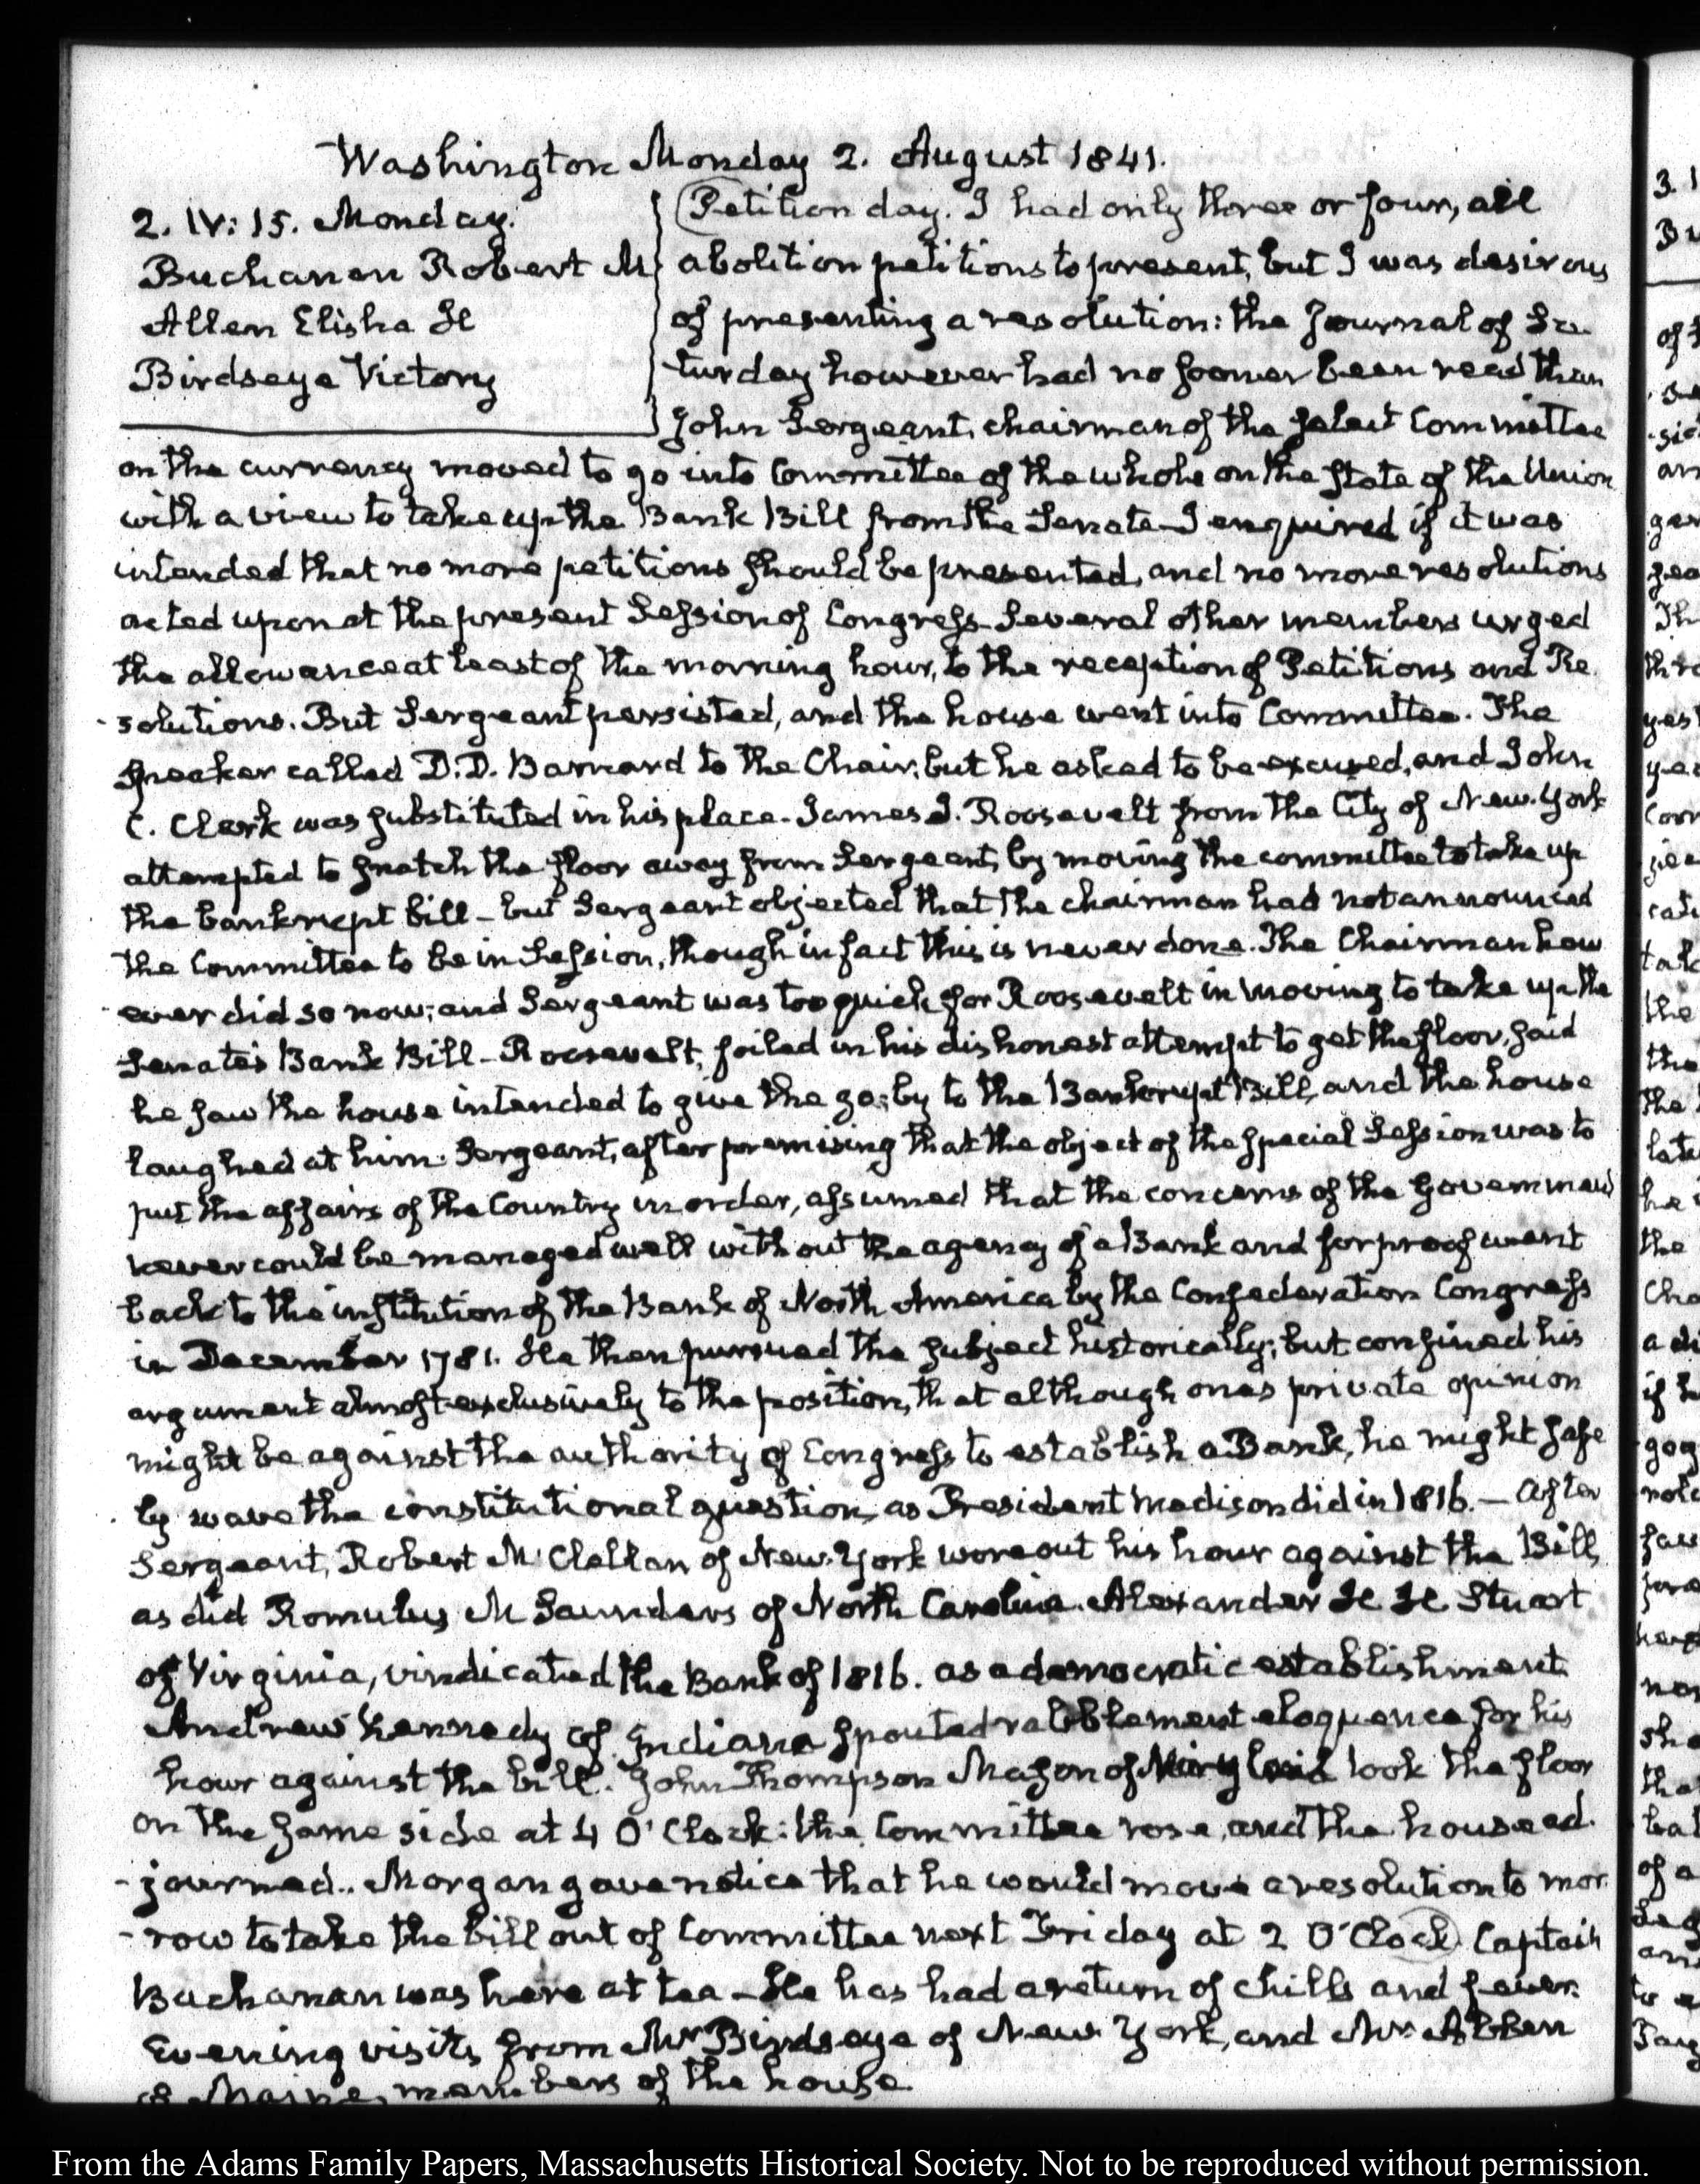 Washington Monday 2. August 1841.
2. IV: 15. Monday.
Buchanan Robert M
Allen Elisha H
Birdseye Victory
Petition day. I had only three or four, all
abolition petitions to present, but I was desirous
of presenting a resolution: the Journal of Sa-
turday however had no sooner been read than
John Sergeant, chairman of the Select Committee
on the currency moved to go into Committee of the whole on the State of the Union
with a view to take up the Bank Bill from the Senate - I enquired if it was
intended that no more petitions should be presented, and no more resolutions
acted upon at the present Session of Congress - Several other members urged
the allowance at least of the morning hour, to the reception of Petitions and Re-
-solutions. But Sergeant persisted, and the house went into Committee. The
Speaker called D. D. Barnard to the Chair, but he asked to be excused, and John
C. Clark was substituted in his place - James I. Roosevelt from the City of New-York
attempted to snatch the floor away from Sergeant, by moving the committee to take up
the bankrupt bill - but Sergeant objected that the chairman had not announced
the Committee to be in Session, though in fact this is never done. The Chairman how
ever did so now; and Sergeant was too quick for Roosevelt in moving to take up the
Senate's Bank Bill - Roosevelt, foiled in his dishonest attempt to get the floor, said
he saw the house intended to give the go-by to the Bankrupt Bill, and the house
laughed at him. Sergeant, after premising that the object of the special Session was to
put the affairs of the Country in order, assumed that the concerns of the Government
never could be managed well without the agency of a Bank and for proof went
back to the institution of the Bank of North America by the Confederation Congress
in December 1781. He then pursued the subject historically; but confined his
argument almost exclusively to the position, that although ones private opinion
might be against the authority of Congress to establish a Bank, he might safe
ly wave the constitutional question, as President Madison did in 1816. — After
Sergeant, Robert McClellan of New-York wore out his hour against the Bill,
as did Romulus M Saunders of North Carolina. Alexander H H Stuart
of Virginia, vindicated the Bank of 1816. as a democratic establishment.
Andrew Kennedy of Indiana spouted rabblement eloquence for his
hour against the bill. John Thompson Mason of Maryland took the floor
on the same side at 4 O'Clock: the Committee rose, and the house ad-
-journed.. Morgan gave notice that he would move a resolution to mor-
-row to take the bill out of Committee next Friday at 2 O'Clock Captain
Buchanan was here at tea - He has had a return of chills and fever.
Evening visits from Mr Birdseye of New-York, and Mr Allen
of Maine, members of the house.
From the Adams Family Papers, Massachusetts Historical Society. Not to be reproduced without permission.